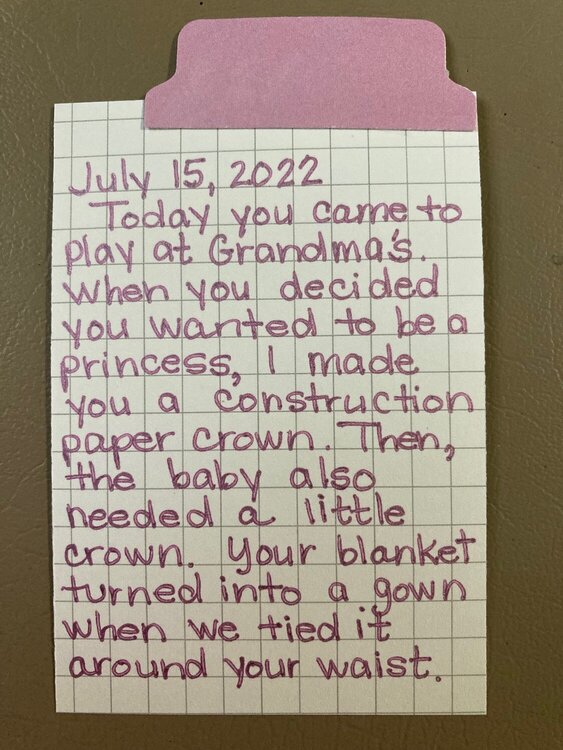 July 15, 2022
Today you came to
play at Grandma's.
When you decided
you wanted to be a
princess, I made
you a construction
paper crown. Then,
the baby also
needed a little
crown. Your blanket
turned into a gown
when we tied it
around your waist.